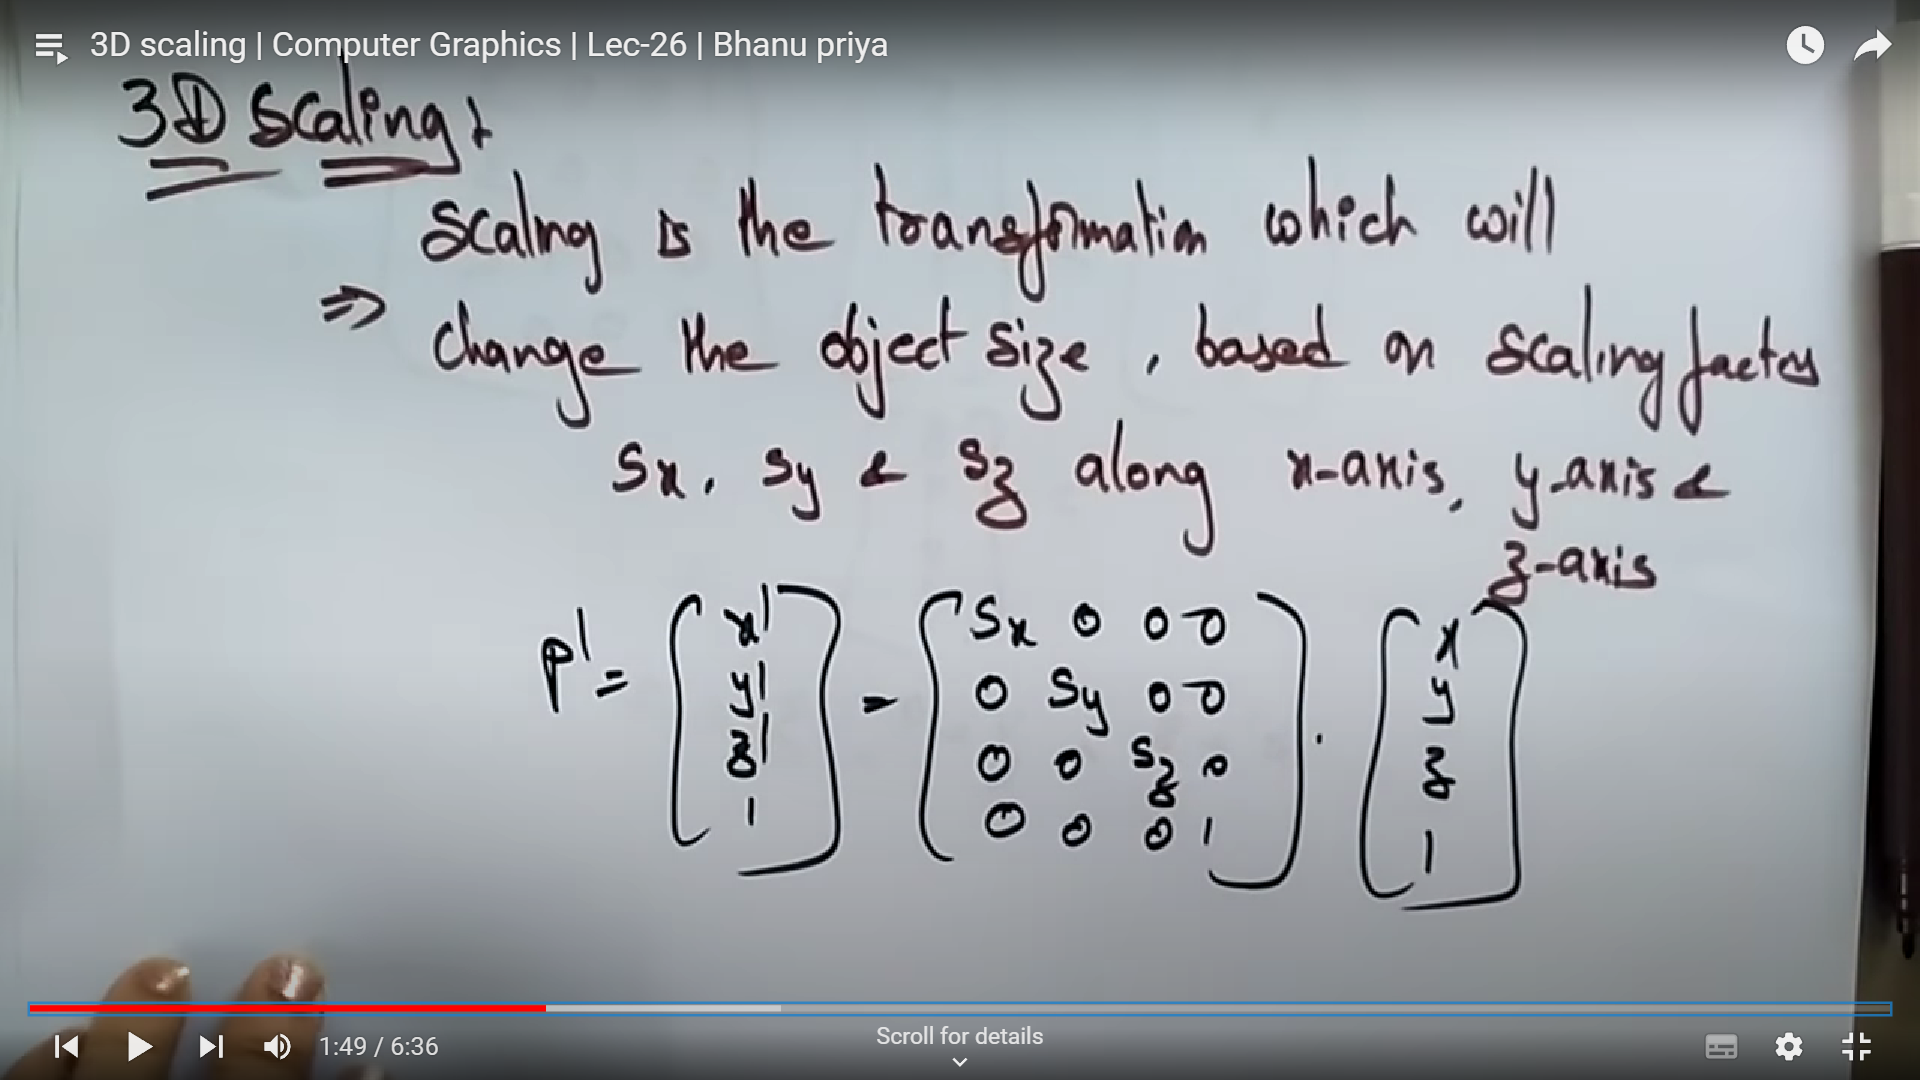 3D scaling | Computer Graphics | Lec-26 | Bhanu priya
3D Scaling:
Scaling is the transformation which will
⇒ change the object size, based on scaling factors
Sx, Sy & Sz along x-axis, y-axis &
z-axis
P' = [x' = [Sx 0 0 0 . [x
y' 0 Sy 0 0 y
z' 0 0 Sz 0 z
1] 0 0 0 1] 1]
Scroll for details
1:49 / 6:36